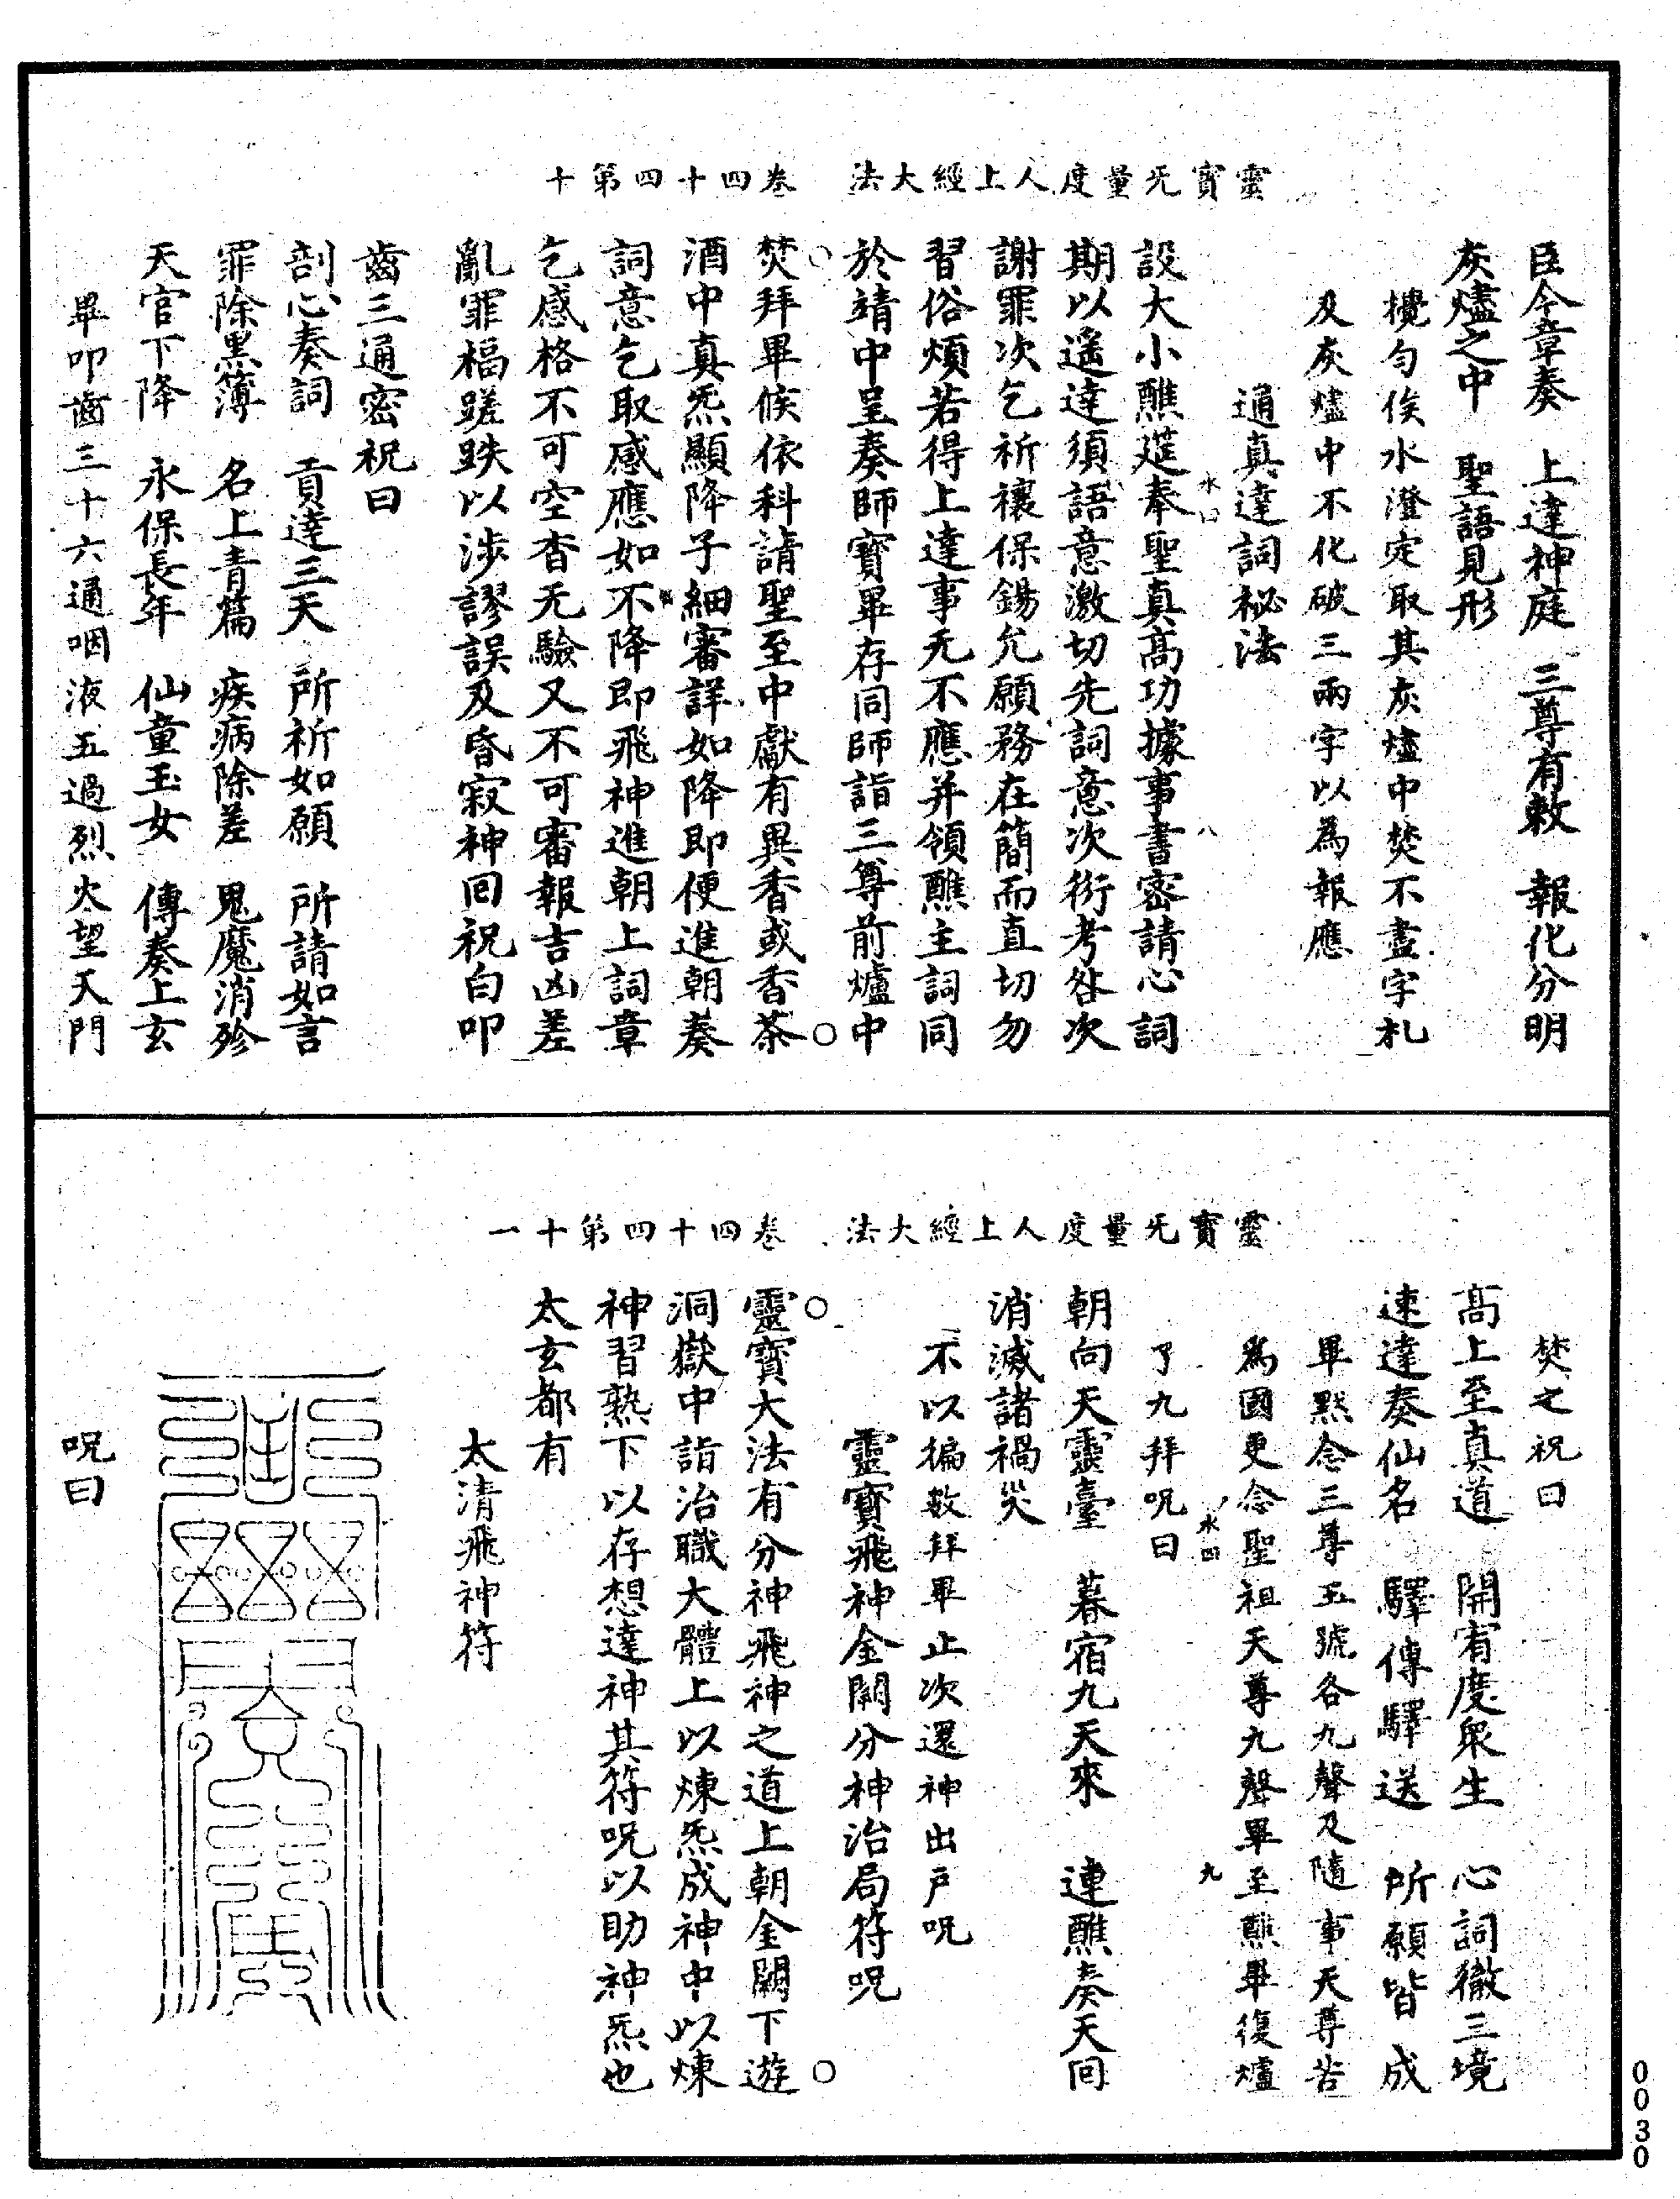 靈寶无量度人上經大法　卷四十四第十
臣今章奏　上達神庭　三尊有敕　報化分明
灰燼之中　聖語見形
攪勻俟水澄定取其灰燼中焚不盡字札
及灰燼中不化破三兩字以為報應
通真達詞祕法
設大小醮筵奉聖真高功據事書密請心詞
期以遙達須語意激切先詞意次銜考咎次
謝罪次乞祈禳保錫允願務在簡而直切勿
習俗煩若得上達事无不應并領醮主詞同
於靖中呈奏師寶畢存同師詣三尊前爐中
焚拜畢候依科請聖至中獻有異香或香茶
酒中真炁顯降子細審詳如降即便進朝奏
詞意乞取感應如不降即飛神進朝上詞章
乞感格不可空杳无驗又不可審報吉凶差
亂罪福蹉跌以涉謬誤及昏寂神回祝白叩
齒三通密祝曰
剖心奏詞　貢達三天　所祈如願　所請如言
罪除黑簿　名上青篇　疾病除差　鬼魔消殄
天官下降　永保長年　仙童玉女　傳奏上玄
畢叩齒三十六通咽液五過烈火望天門
水口
八
靈寶无量度人上經大法　卷四十四第十一
焚之祝曰
高上至真道　開宥度眾生　心詞徹三境
速達奏仙名　驛傳驛送　所願皆成
畢默念三尊玉號各九聲及隨事天尊若
為國更念聖祖天尊九聲畢至醮畢復爐
了九拜呪曰
朝向天靈臺　暮宿九天來　連醮奏天回
消滅諸禍災
不以徧數拜畢止次還神出戶呪
靈寶飛神金闕分神治局符呪
靈寶大法有分神飛神之道上朝金闕下遊
洞嶽中詣治職大體上以煉炁成神中以煉
神習熟下以存想達神其符呪以助神炁也
太玄都有
太清飛神符
呪曰
水四
九
0030